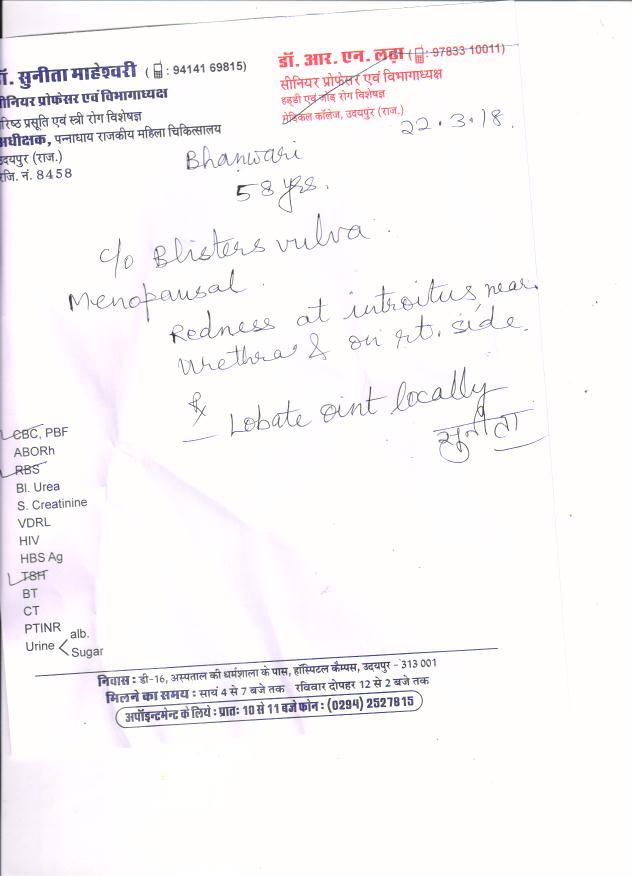 डॉ. सुनीता माहेश्वरी ( : 94141 69815)
सीनियर प्रोफेसर एवं विभागाध्यक्ष
वरिष्ठ प्रसूति एवं स्त्री रोग विशेषज्ञ
अधीक्षक, पन्नाधाय राजकीय महिला चिकित्सालय
उदयपुर (राज.)
रजि. नं. 8458
डॉ. आर. एन. लढ़ा ( : 97833 10011)
सीनियर प्रोफेसर एवं विभागाध्यक्ष
हड्डी एवं जोड़ रोग विशेषज्ञ
मेडिकल कॉलेज, उदयपुर (राज.)
22.3.18.
Bhanwari
58 yrs.
c/o Blisters vulva.
Menopausal.
Redness at introitus near
urethra & on rt. side.
℞
Lobate oint locally
सुनीता
CBC, PBF
ABORh
RBS
Bl. Urea
S. Creatinine
VDRL
HIV
HBS Ag
TSH
BT
CT
PTINR
Urine < alb.
Sugar
निवास : डी-16, अस्पताल की धर्मशाला के पास, हॉस्पिटल कैम्पस, उदयपुर - 313 001
मिलने का समय : सायं 4 से 7 बजे तक रविवार दोपहर 12 से 2 बजे तक
अपॉइन्टमेन्ट के लिये : प्रातः 10 से 11 बजे फोन : (0294) 2527815